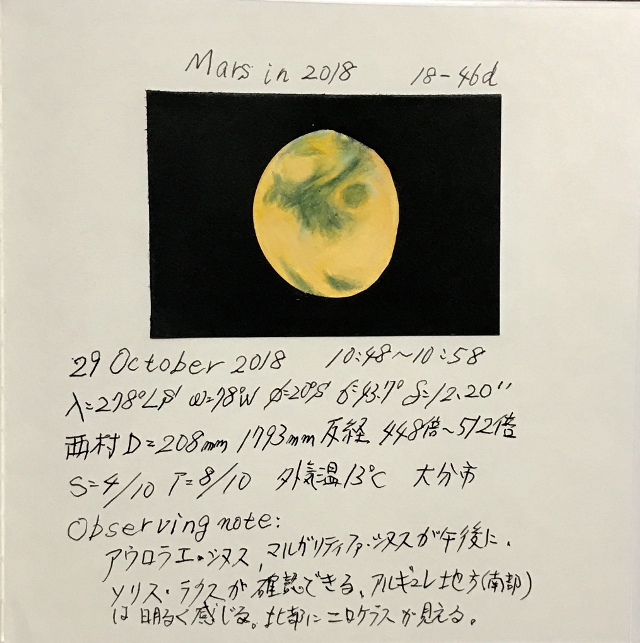 Mars in 2018 18-46d
29 October 2018 10:48~10:58
λ=278°Ls ω=78°W φ=20°S δ=43.7° δ=12.20"
西村 D=208mm 1793mm 反経 448倍~512倍
S=4/10 T=8/10 外気温13℃ 大分市
Observing note:
アウロラエ・シヌス、マルガリティファ・シヌスが午後に、
ソリス・ラクスが確認できる、アルギュレ地方(南部)
は明るく感じる。北部にニロケラスが見える。